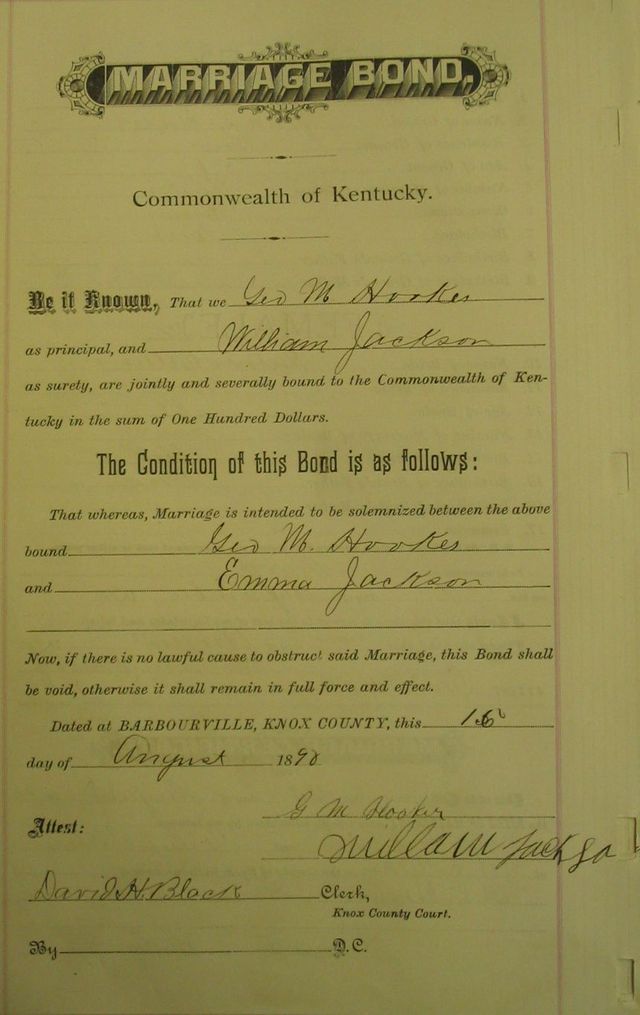 MARRIAGE BOND.
Commonwealth of Kentucky.
Be it Known, That we Geo M Hooker
as principal, and William Jackson
as surety, are jointly and severally bound to the Commonwealth of Ken-
tucky in the sum of One Hundred Dollars.
The Condition of this Bond is as follows:
That whereas, Marriage is intended to be solemnized between the above
bound Geo M. Hooker
and Emma Jackson
Now, if there is no lawful cause to obstruct said Marriage, this Bond shall
be void, otherwise it shall remain in full force and effect.
Dated at BARBOURVILLE, KNOX COUNTY, this
day of August 1890
G M Hooker
Attest:
William Jackso
David H. Black Clerk,
Knox County Court.
By D.C.